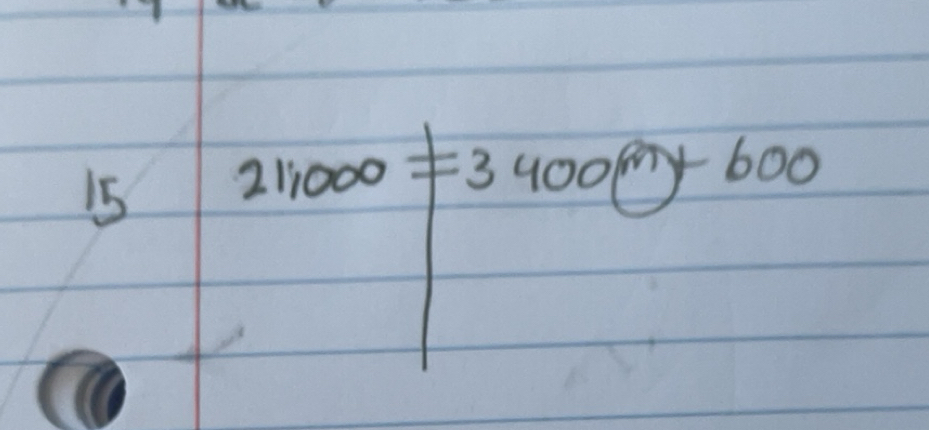 15 21,000 = 3400m + 600